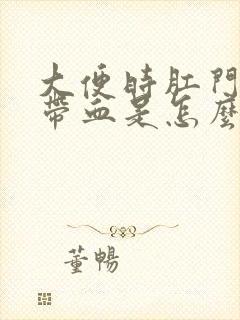 大便時肛門
帶血是怎麼
董暢